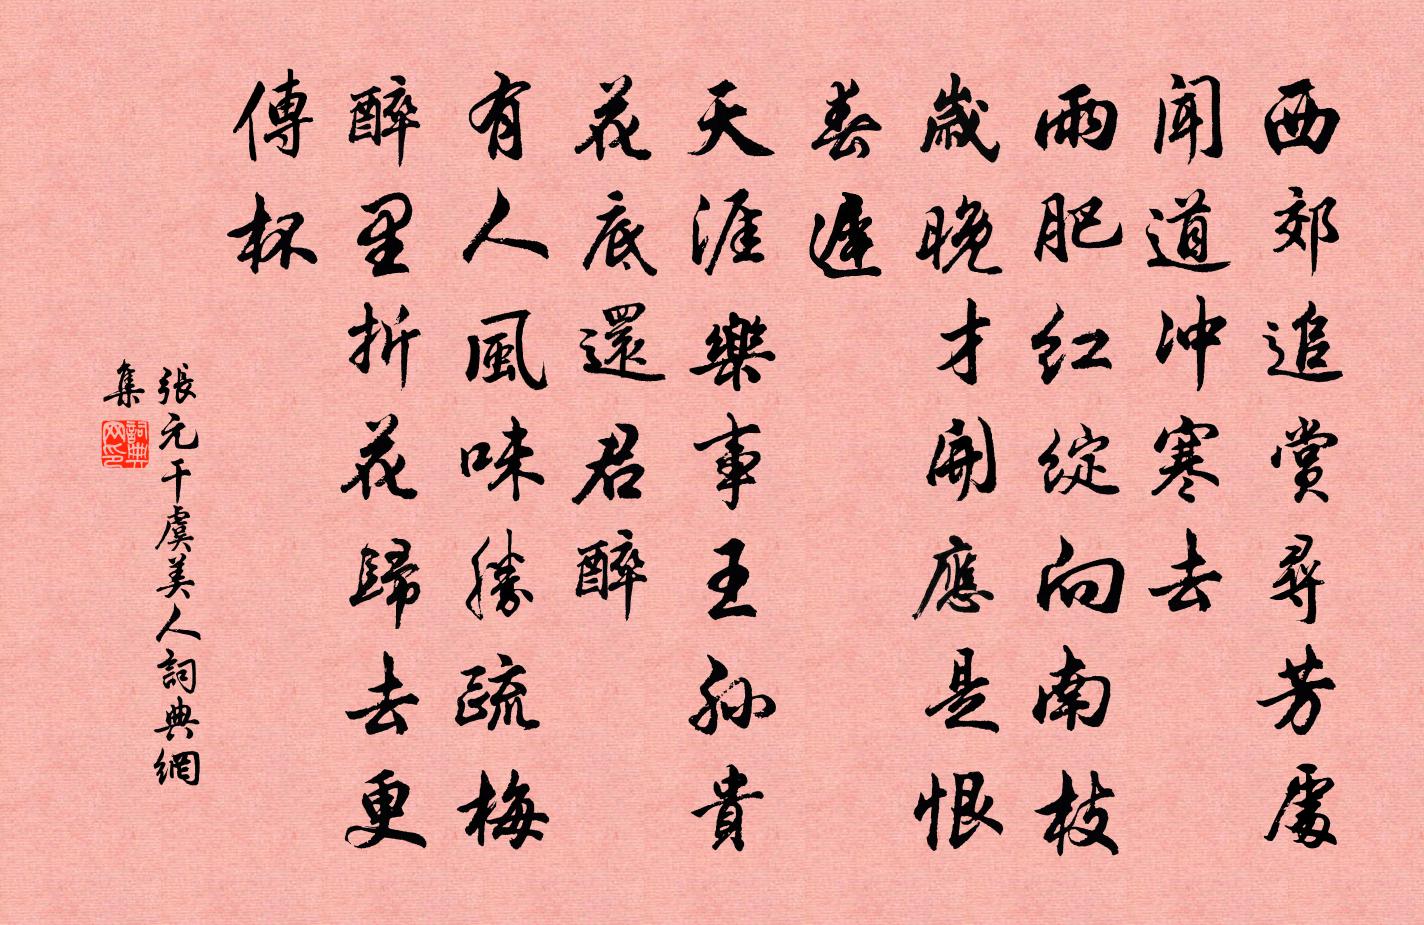 西郊追賞尋芳處
聞道冲寒去
雨肥红綻向南枝
歲晚才開應是恨
春遲
天涯樂事王孫貴
花底還君醉
有人風味勝疏梅
醉里折花歸去更
傳杯
張元干虞美人詞典網
集
詞典
网印